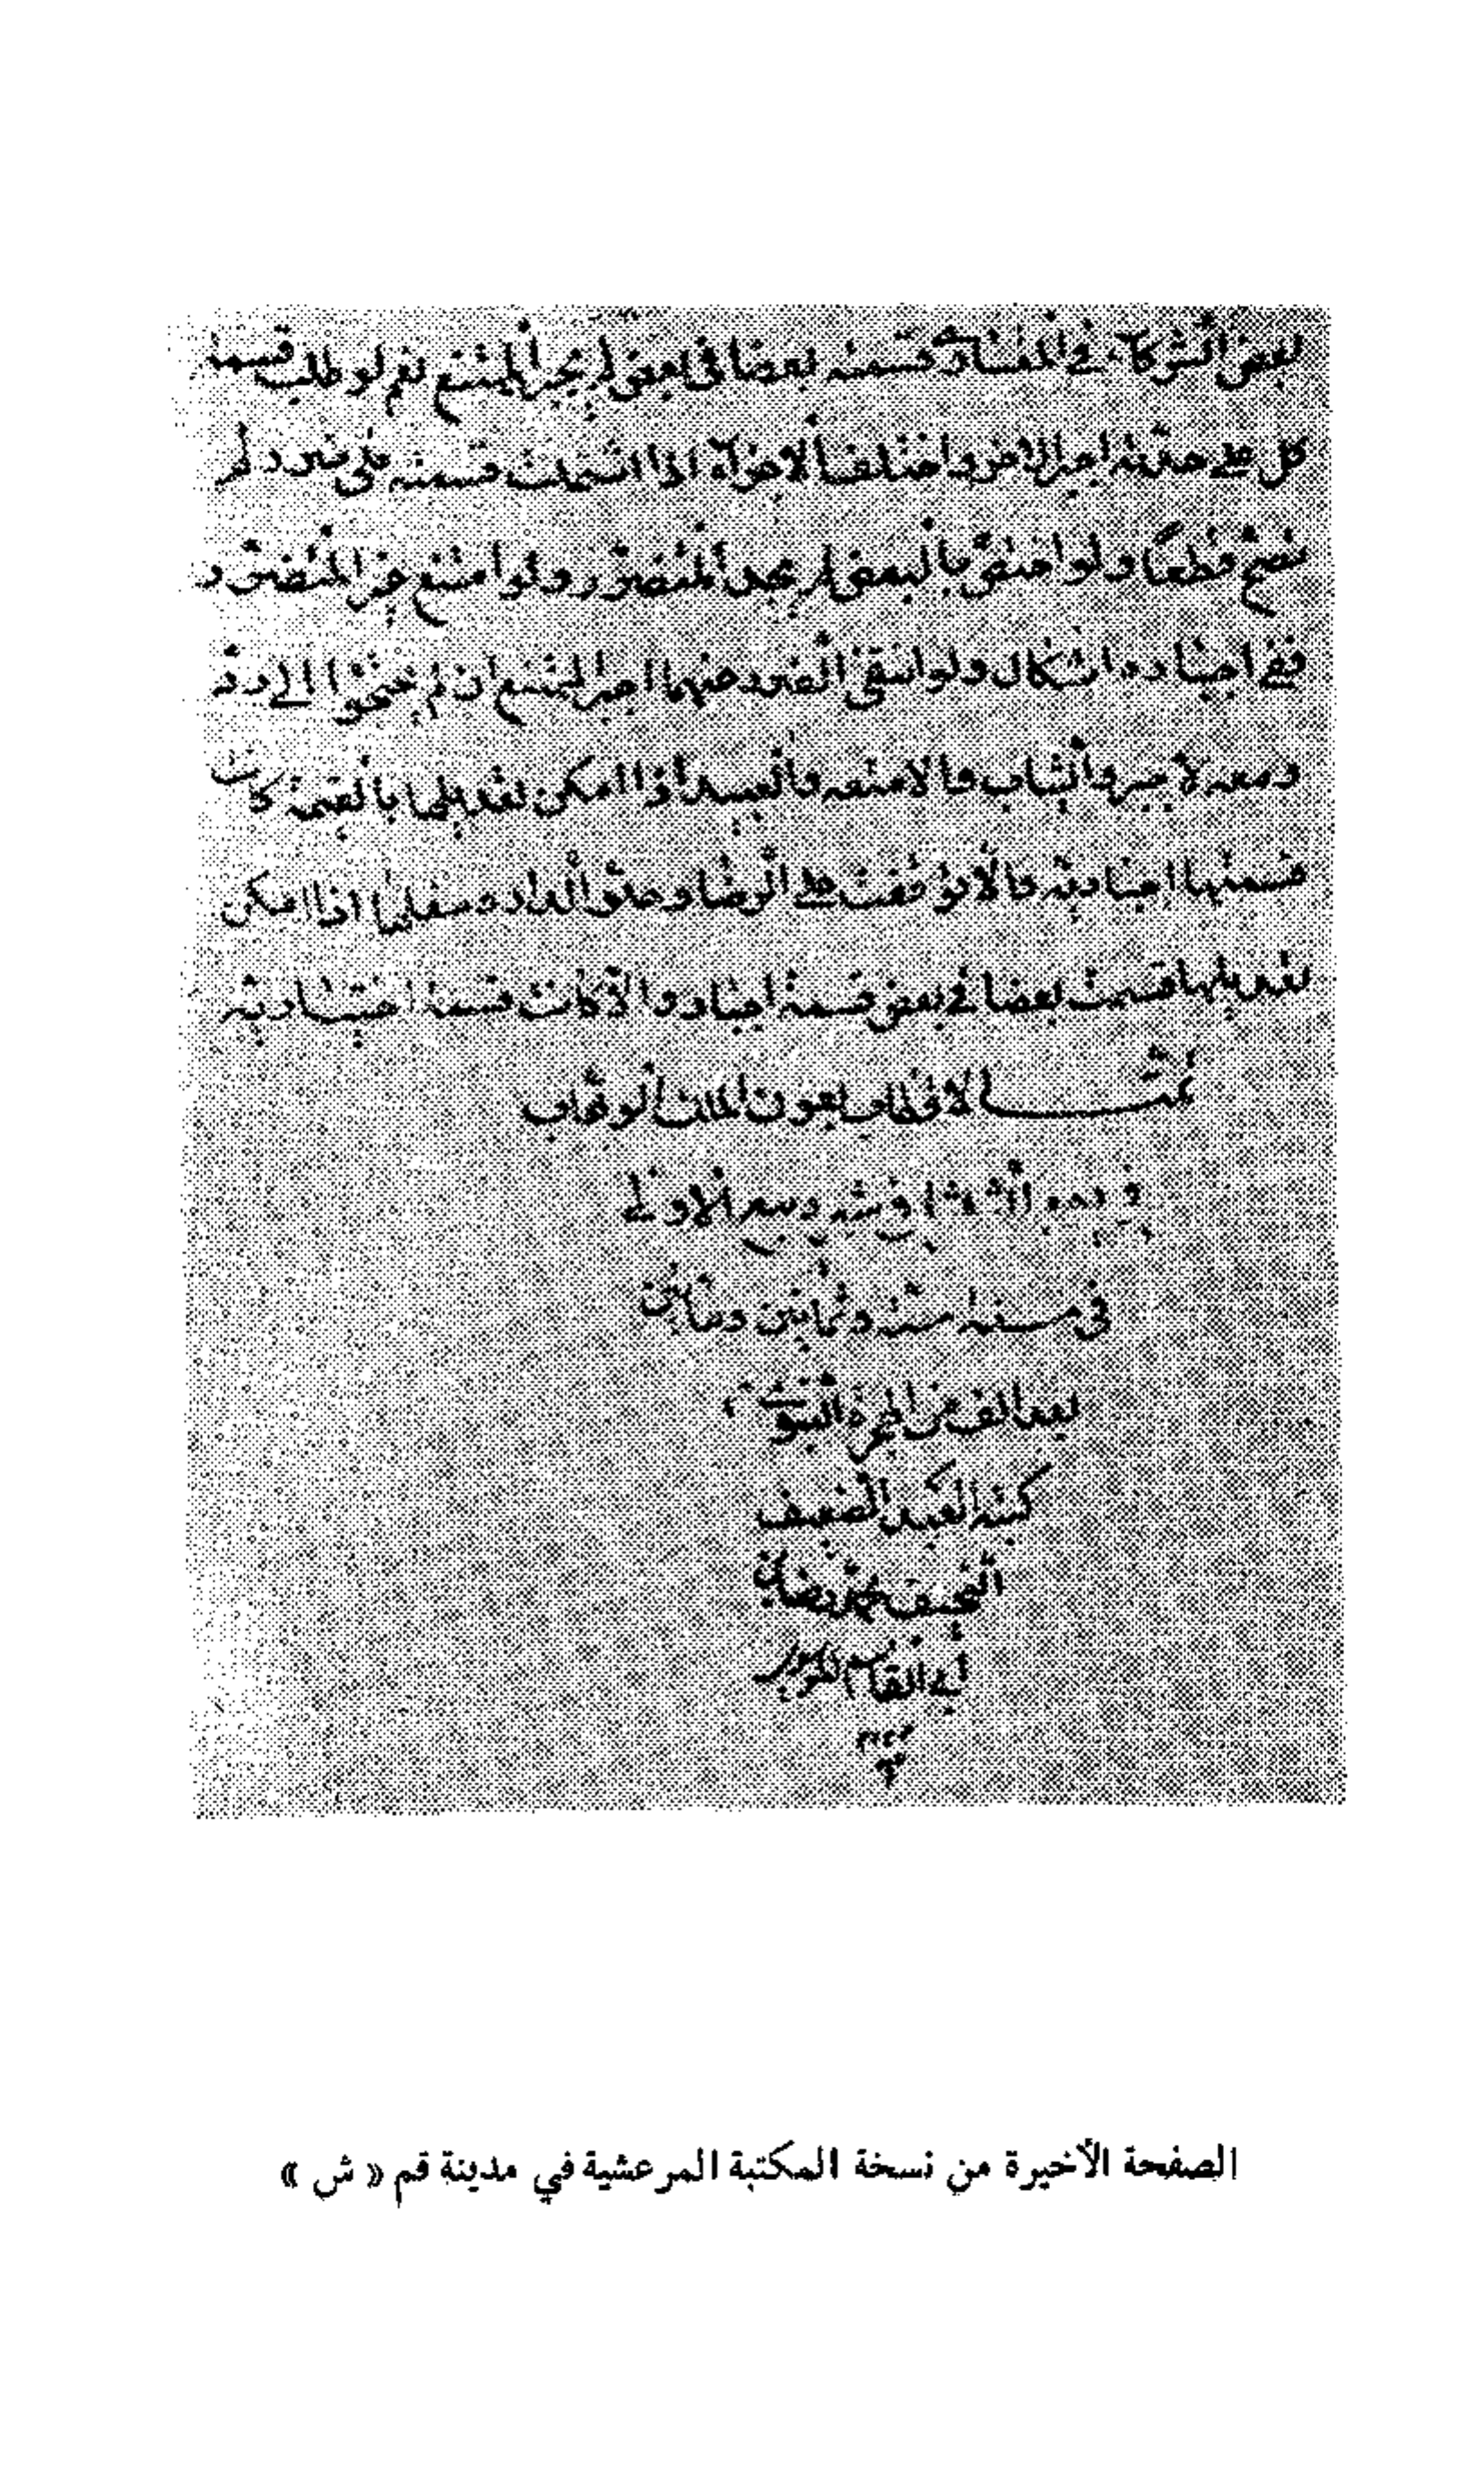 بعض الشركاء في المتشاركة قسمته بعضا في بعض لم يجبر الممتنع نعم لو طلب قسمة
كل على حدته اجبر الاخر و الاجزاء اذا اشتملت قسمته على ضرر لم
تصح قطعا ولو اختص بالبعض لم يجبر المتضرر ولو امتنع غير المتضرر
ففي اجباره اشكال ولو انتفى الضرر عنهما اجبر الممتنع ان لم يحتج الى رد
ومعه لا يجبر والثياب والامتعه والعبيد اذا امكن تعديلها بالقيمة كانت
قسمتها اجبارية والا توقفت على الرضا وعلو الدار وسفلها اذا امكن
تعديلها قسمت بعضا في بعض قسمة اجبار والا كانت قسمة اختيارية
تمت بعون الملك الوهاب
في شهر ربيع الاولى
في سنة ست وثمانين
بعد الف من الهجرة النبوية
كتبه العبد الضعيف
النحيف محمد
ابي القاسم
الصفحة الأخيرة من نسخة المكتبة المرعشية في مدينة قم « ش »